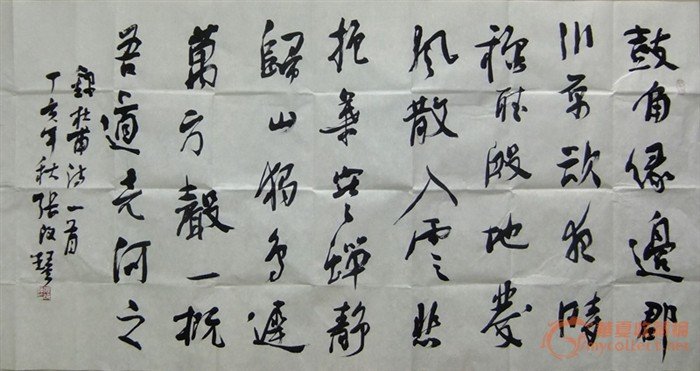 鼓角緣邊郡
川原欲夜時
秋聽殷地發
風散入雲悲
抱葉寒蟬靜
歸山獨鳥遲
萬方聲一概
吾道竟何之
錄杜甫詩一首
丁亥年秋張改琴